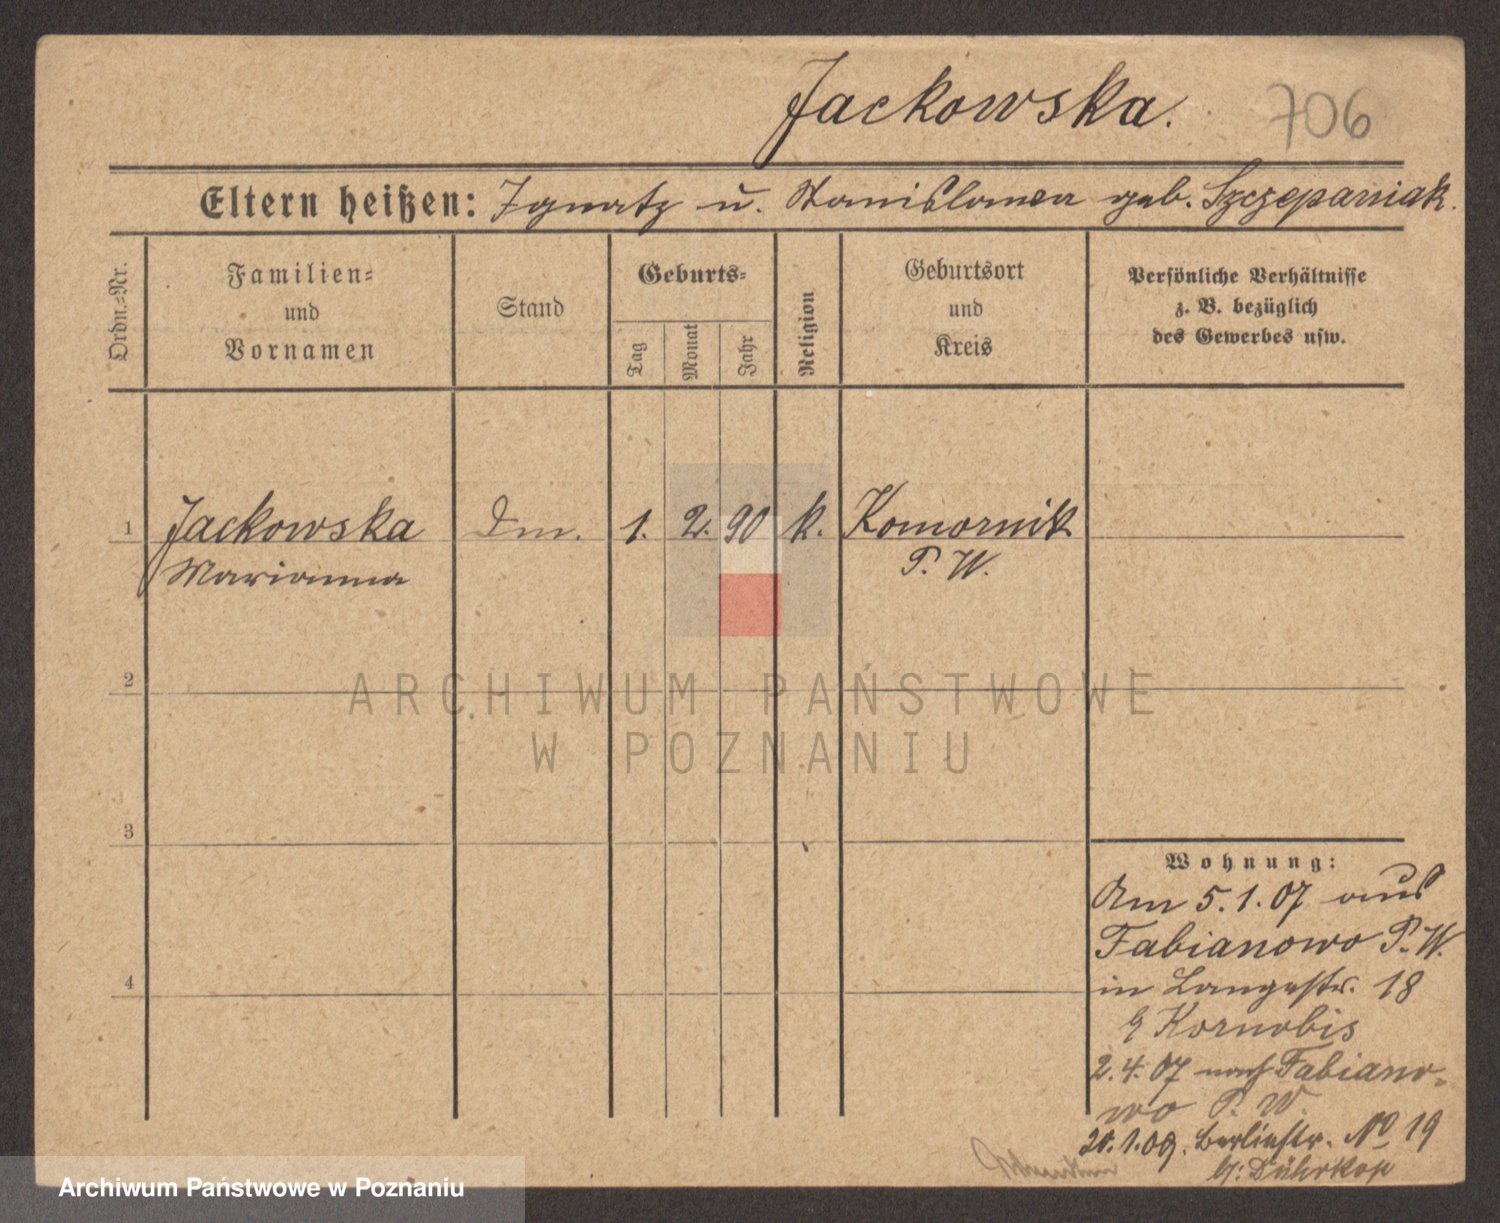 Jackowska. 706
Eltern heißen: Ignatz u. Stanislawa geb. Szczepaniak.
Ordn.=Nr.
Familien=
und
Vornamen
Stand
Geburts=
Tag
Monat
Jahr
Religion
Geburtsort
und
Kreis
Persönliche Verhältnisse
z. B. bezüglich
des Gewerbes usw.
1 Jackowska 1. 2. 90 k. Komornik
Marianna P. W.
2
ARCHIWUM PAŃSTWOWE
W POZNANIU
3
Wohnung:
Am 5.1.07 aus
Fabianowo P. W.
in Langestr. 18
Kornobis
2.4.07 nach Fabiano-
wo P. W.
1.09. Berlinstr. No 19
b/: Dührkop
4
Archiwum Państwowe w Poznaniu